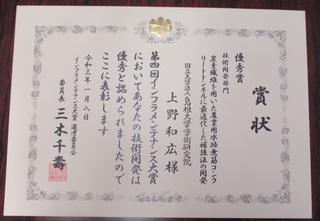 賞状
優秀賞
技術開発部門
炭素繊維を用いた農業用水路無筋コンク
リートトンネルに最適化した補強法の開発
国立大学法人島根大学学術研究院
上野和広様
第四回インフラメンテナンス大賞
においてあなたの技術開発は
優秀と認められましたので
ここに表彰します
令和三年一月八日
インフラメンテナンス大賞 選考委員会
委員長 三木千壽